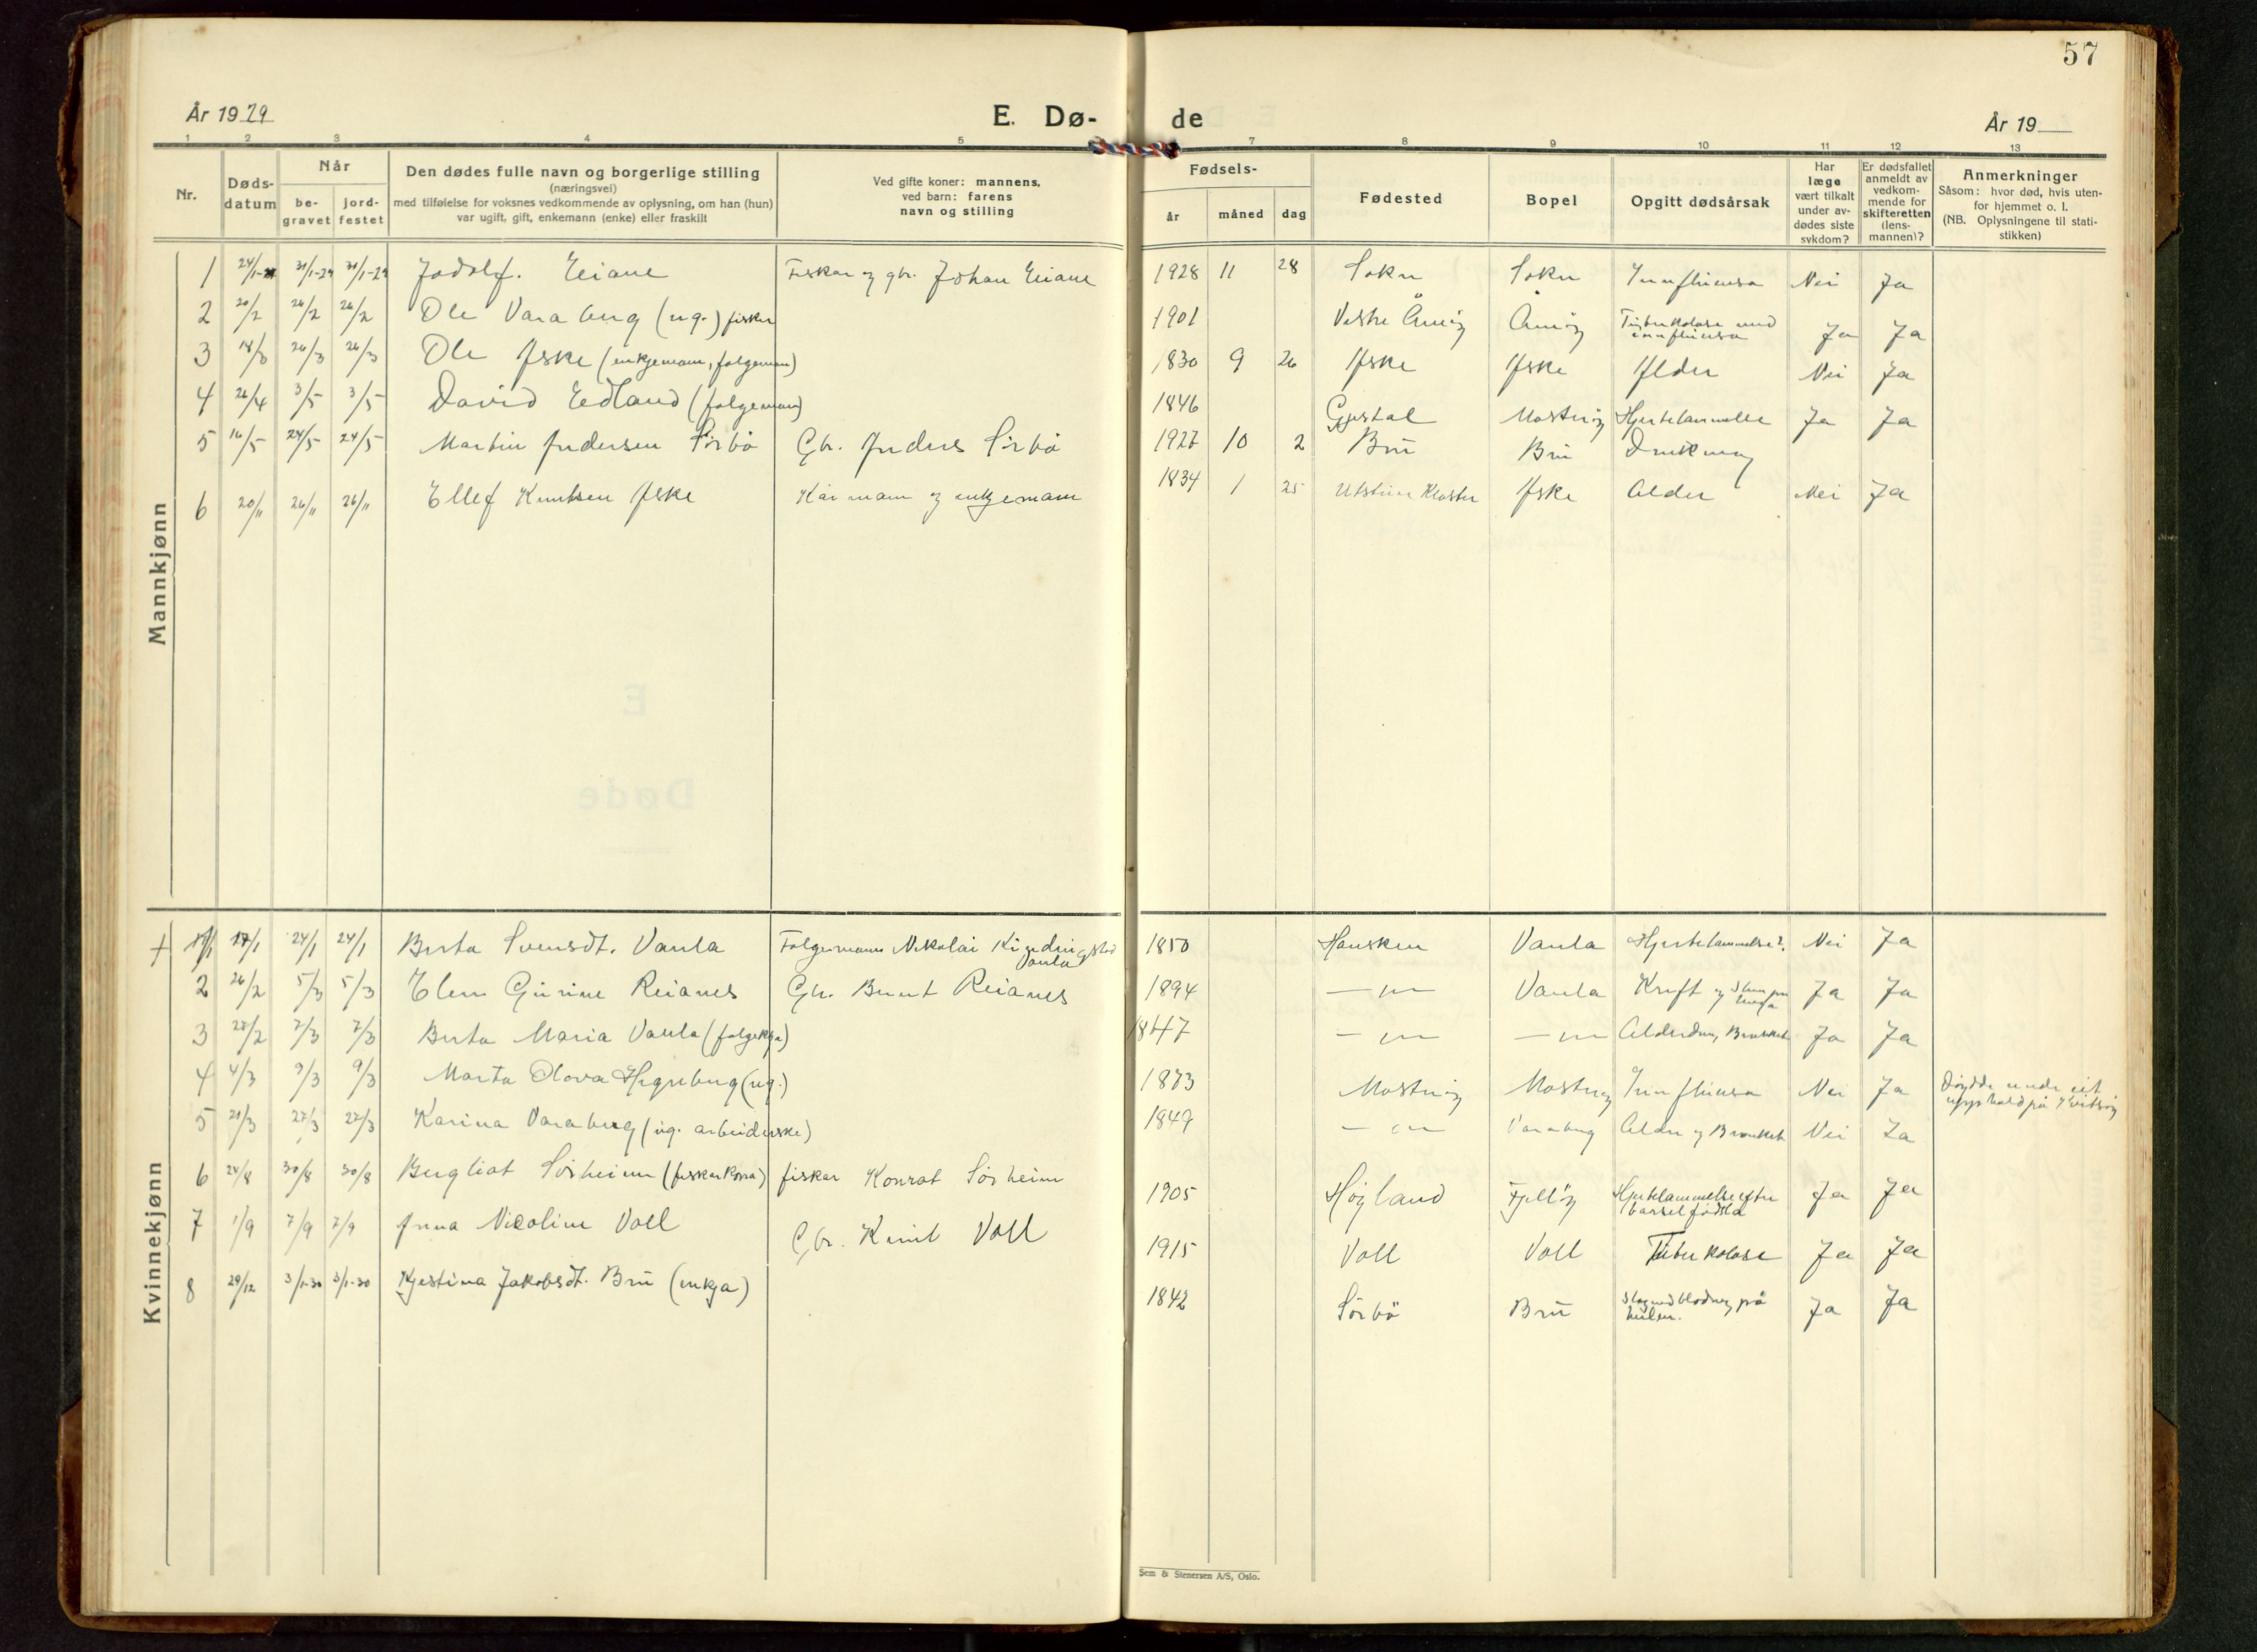 57
År 1929
E. Dø-
de
År 19
1 2 3 4 5 7 8 9 10 11 12 13
Nr.
Døds-
datum
Når
be-
gravet
jord-
festet
Den dødes fulle navn og borgerlige stilling
(næringsvei)
med tilføielse for voksnes vedkommende av oplysning, om han (hun)
var ugift, gift, enkemann (enke) eller fraskilt
Ved gifte koner: mannens,
ved barn: farens
navn og stilling
Fødsels-
år
måned
dag
Fødested
Bopel
Opgitt dødsårsak
Har
læge
vært tilkalt
under av-
dødes siste
sykdom?
Er dødsfallet
anmeldt av
vedkom-
mende for
skifteretten
(lens-
mannen)?
Anmerkninger
Såsom: hvor død, hvis uten-
for hjemmet o. l.
(NB. Oplysningene til stati-
stikken)
Mannkjønn
1 24/1 31/1-29 31/1-29 Jadolf. Eiane Fiskar og gbr. Johan Eiane 1928 11 28 Sokn Sokn Innfluensa Nei Ja
2 20/2 26/2 26/2 Ole Varaberg (ug.) fisker 1901 Vestre Åmöy Åmöy Tuberkolose med
innfluensa Ja Ja
3 18/3 26/3 26/3 Ole Aske (enkjemann, folgemann) 1830 9 26 Aske Aske Alder Nei Ja
4 26/4 3/5 3/5 David Edland (folgemann) 1846 Gjestal Mosteröy Hjertelammelse Ja Ja
5 16/5 24/5 24/5 Martin Andersen Sörbö Gbr. Anders Sörbö 1927 10 2 Bru Bru Drukning
6 20/11 26/11 26/11 Ellef Knutsen Aske Kårmann og enkjemann 1834 1 25 Utstein Kloster Aske Alder Nei Ja
Kvinnekjønn
17/1 24/1 24/1 Berta Svensdt. Vaula Folgemann Nikolai Kindingstad
Vaula 1850 Hausken Vaula Hjertelammelse? Nei Ja
2 26/2 5/3 5/3 Elen Gurine Reianes Gbr. Bernt Reianes 1894 — " — Vaula Kreft og Ja Ja
3 27/2 7/3 7/3 Berta Maria Vaula (folgekja) 1847 — " — — " — Alderdom, Bronkit Ja Ja
4 4/3 9/3 9/3 Marta Olava Hegreberg (ug.) 1873 Mosteröy Mosteröy Innfluensa Nei Ja Döydde under eit
upphald på Kvitsöy
5 21/3 27/3 27/3 Karina Varaberg (ug. arbeiderske) 1849 — " — Varaberg Alder og Bronkit Nei Ja
6 24/8 30/8 30/8 Bergliot Sörheim (fiskarkona) fiskar Konrat Sörheim 1905 Höyland Fjellöy Hjertelammelse efter
barselfödsla Ja Ja
7 1/9 7/9 7/9 Anna Nicoline Voll Gbr. Knut Voll 1915 Voll Voll Tuberkolose Ja Ja
8 29/12 3/1-30 3/1-30 Kjestina Jakobsdt. Bru (enkja) 1842 Sörbö Bru Slag med blödning på
heilen. Ja Ja
Sem & Stenersen A/S, Oslo.